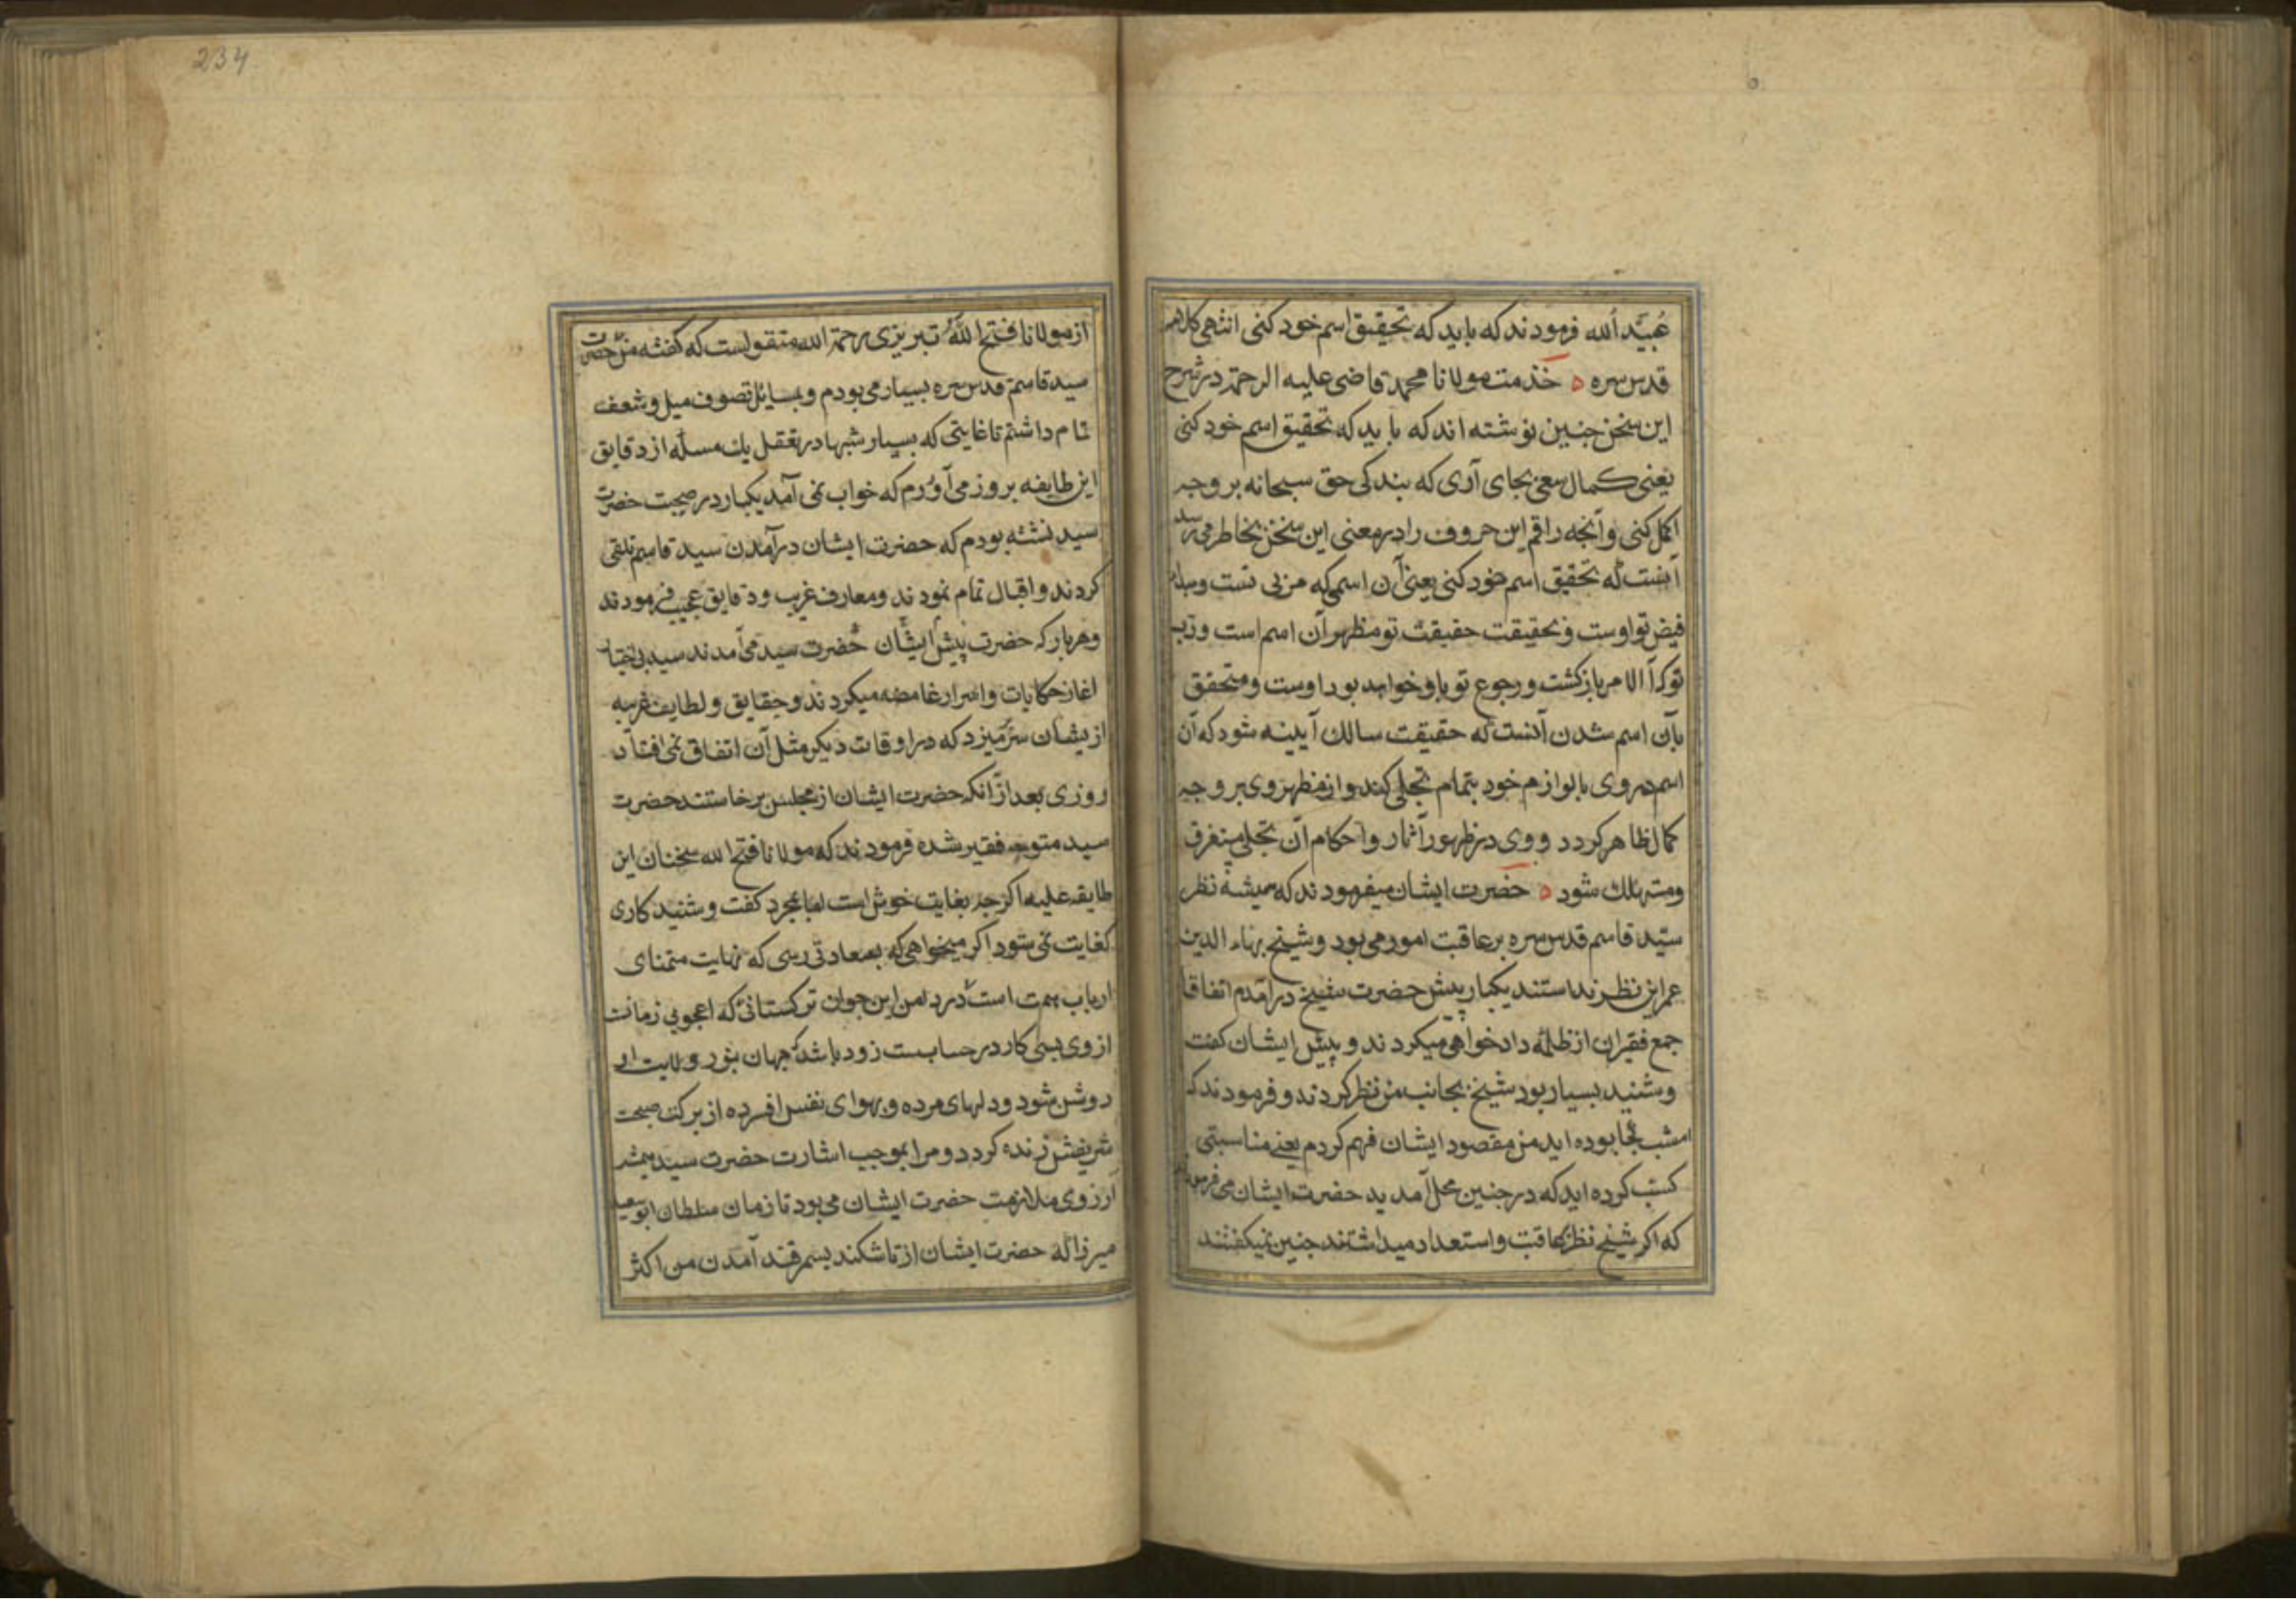 عُبَیْد الله فرمودند که باید که تحقیق اسم خود کنی انتهی کلامه
قدس سره ه خدمت مولانا محمد قاضی علیه الرحمة در شرح
این سخن جنین نوشته اند که باید که تحقیق اسم خود کنی
یعنی کمال سعی بجای آری که بندکی حق سبحانه بر وجه
اکمل کنی و آنجه راقم این حروف را در معنی این سخن بخاطر می رسد
آنست که تحقیق اسم خود کنی یعنی آن اسمی که مربی تست و مبداء
فیض تو اوست و بحقیقت حقیقت تو مظهر آن اسم است و رب
تو که آخر الامر بازکشت و رجوع تو باو خواهد بود اوست و متحقق
بآن اسم شدن آنست که حقیقت سالک آیینه شود که آن
اسم در وی با لوازم خود بتمام تجلی کند و از مظهر وی بر وجه
کمال ظاهر کردد و وی در ظهور آثار و احکام آن تجلی مستغرق
و مستهلک شود ه حضرت ایشان میفرمودند که همیشه نظر
سید قاسم قدس سره بر عاقبت امور می بود و شیخ بهاء الدین
عمر این نظر نداستند یکبار پیش حضرت شیخ درآمدم اتفاقا
جمع فقیران از ظلمه دادخواهی میکردند و پیش ایشان کفت
و شنید بسیار بود شیخ بجانب من نظر کردند و فرمودند که
امشب کجا بوده اید من مقصود ایشان فهم کردم یعنی مناسبتی
کسب کرده اید که در جنین محل آمدید حضرت ایشان می فرمودند
که اکر شیخ نظر بعاقبت و استعداد میداشتند جنین نمیکفتند
از مولانا فتح الله تبریزی رحمة الله منقولست که کفته من حضرت
سید قاسم قدس سره بسیار می بودم و بمسایل تصوف میل و شعف
تمام داشتم تا غایتی که بسیار شبها در تعقل یک مسله از دقایق
این طایفه بروز می آوردم که خواب نمی آمد یکبار در صحبت حضرت
سید نشته بودم که حضرت ایشان درآمدن سید قاسم تلقی
کردند و اقبال تمام نمودند و معارف غریب و دقایق عجیب فرمودند
و هر بار که حضرت پیش ایشان حضرت سید می آمدند سید بی اختیار
اغاز حکایات و اسرار غامضه میکردند و حقایق و لطایف غریبه
از یشان سر میزد که در اوقات دیکر مثل آن اتفاق نمی افتاد
روزی بعد از آنکه حضرت ایشان از مجلس برخاستند حضرت
سید متوجه فقیر شده فرمودند که مولانا فتح الله سخنان این
طایفه علیه اکرجه بغایت خوش است اما بمجرد کفت و شنید کاری
کفایت نمی شود اکر میخواهی که بسعادتی رسی که نهایت متمنای
ارباب همت است در دامن این جوان ترکستانی که اعجوبی زمانت
از وی بسی کار در حسابست زود باشد که جهان بنور ولایت او
روشن شود و دلهای مرده و بهوای نفس افسرده از برکت صحبت
شریفش زنده کردد و مرا بموجب اشارت حضرت سید همیشه
آرزوی ملازمت حضرت ایشان می بود تا زمان سلطان ابو سعید
میرزا که حضرت ایشان از تاشکند بسمرقند آمدن من اکثر
234